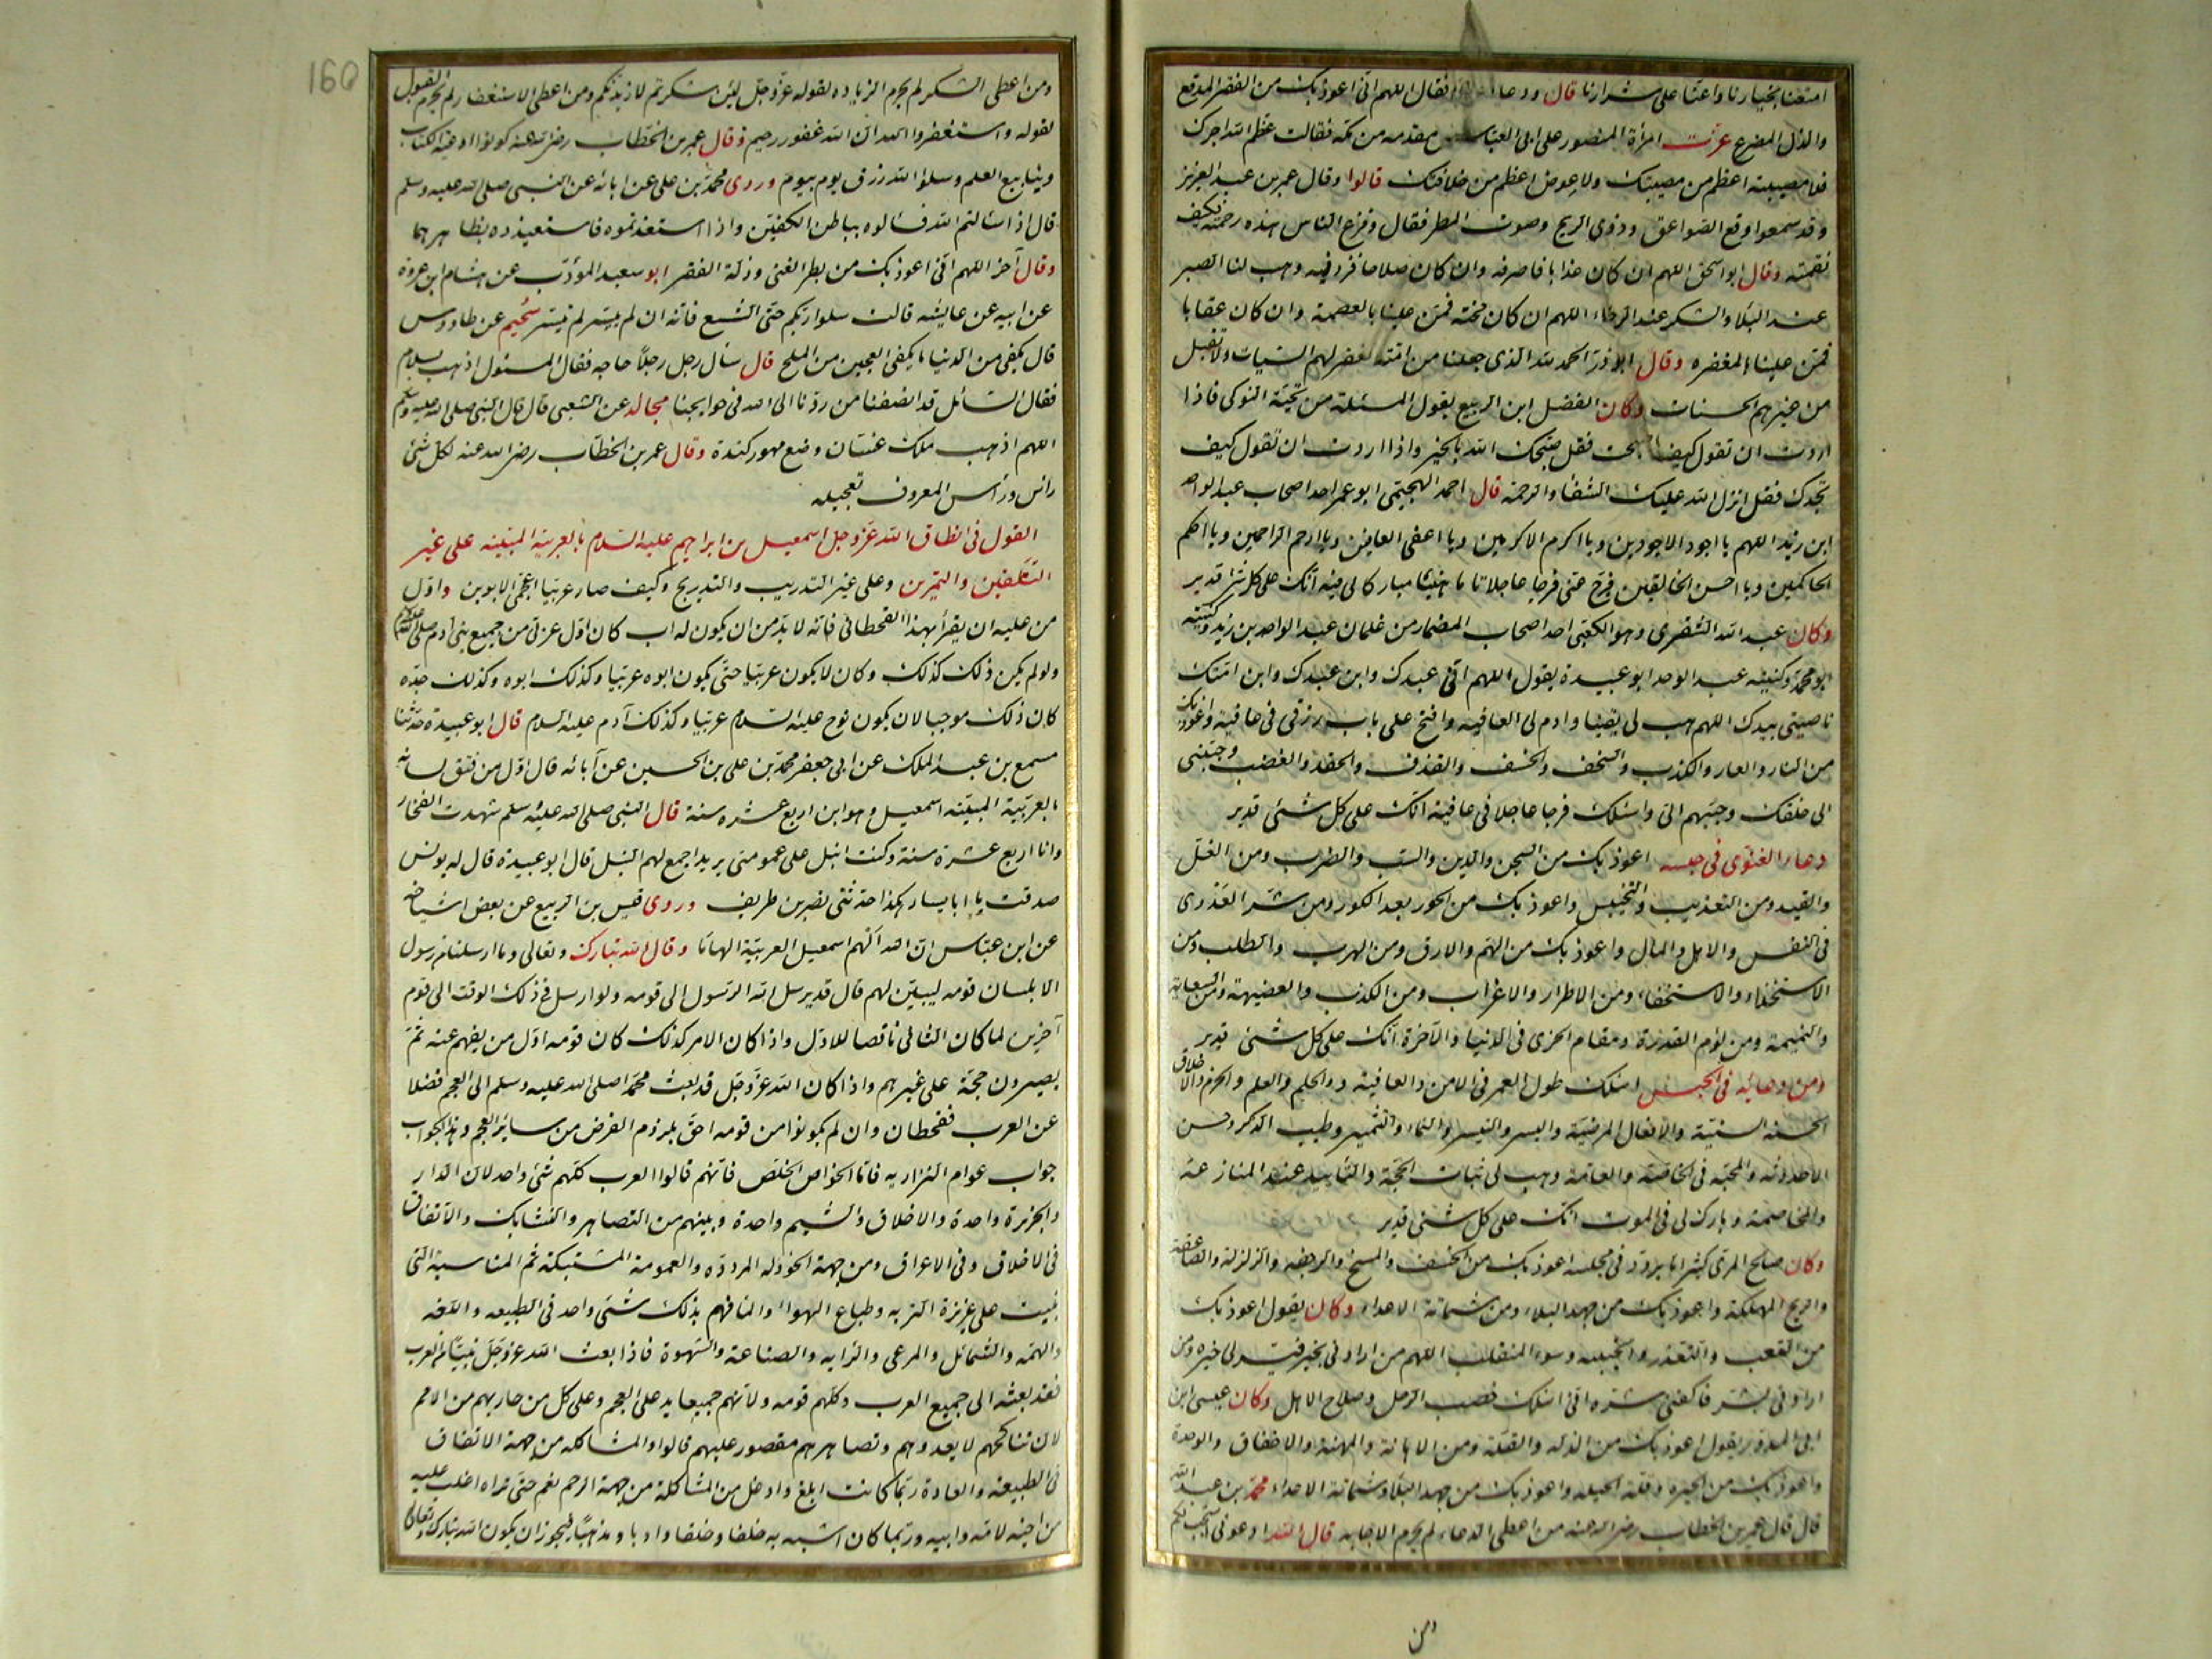 امتعنا بخيارنا واعنا على شرارنا قال ودعا فقال اللهم انى اعوذ بك من الفقر المدقع
والذل المضرع عزت امرأة المنصور على ابى العباس مقدمه من مكة فقالت عظم الله اجرك
فلا مصيبة اعظم من مصيبتك ولا عوض اعظم من خلافتك قالوا وقال عمر بن عبد العزيز
وقد سمعوا وقع الصواعق ودوى الريح وصوت المطر فقال وفزع الناس هذه رحمته فكيف
نقمته وقال ابو اسحق اللهم ان كان عذابا فاصرفه وان كان صلاحا فزد فيه وهب لنا الصبر
عند البلاء والشكر عند الرخاء اللهم ان كان محنة فمن علينا بالعصمة وان كان عقابا
فمن علينا بالمغفره وقال ابو ذر الحمد لله الذى جعلنا من امة تغفر لهم السيات ولا تقبل
من غيرهم الحسنات وكان الفضل ابن الربيع يقول المسئلة من تحية النوكى فاذا
اردت ان تقول كيف اصبحت فقل صبحك الله بالخير واذا اردت ان تقول كيف
تجدك فقل انزل الله عليك الشفاء والرحمة قال احمد الهجيمى ابو عمر احد اصحاب عبد الواحد
ابن زيد اللهم يا اجود الاجودين ويا اكرم الاكرمين ويا اعفى العافين ويا ارحم الراحمين ويا احكم
الحاكمين ويا احسن الخالقين فرج عنى فرجا عاجلا تاما هنيئا مباركا لى فيه انك على كل شئ قدير
وكان عبد الله الشقرى وهو الكعبى احد اصحاب المضمار من غلمان عبد الواحد بن زيد وكنيته
ابو محمد وكنية عبد الواحد ابو عبيدة يقول اللهم انى عبدك وابن عبدك وابن امتك
ناصيتى بيدك اللهم هب لى يقينا وادم لى العافيه وافتح على باب رزقى فى عافية واعوذ بك
من النار والعار والكذب والسخف والخسف والقذف والحقد والغضب وحببنى
الى خلقك وحببهم الى واسئلك فرجا عاجلا فى عافية انك على كل شئ قدير
دعاء الغنوى فى حبسه اعوذ بك من السجن والدين والسب والضرب ومن الغل
والقيد ومن التعذيب والتخييس واعوذ بك من الحور بعد الكور ومن شر العدوى
فى النفس والاهل والمال واعوذ بك من الهم والارق ومن الهرب والطلب ومن
الاستخذاء والاستخفاء ومن الاطراد والاغراب ومن الكذب والعضيهة ومن السعاية
والنميمة ومن لؤم القدرة ومقام الخزى فى الدنيا والآخرة انك على كل شئ قدير
ومن دعائه فى الحبس اسئلك طول العمر فى الامن والعافية والحلم والعلم والحزم والاخلاق
الحسنه السنية والافعال المرضية واليسر والتيسير والنماء والتثمير وطيب الذكر وحسن
الاحدوثه والمحبه فى الخاصة والعامة وهب لى ثبات الحجة والتأييد عند المنازعة
والمخاصمة وبارك لى فى الموت انك على كل شئ قدير
وكان صالح المرى كثيرا ما يردد فى مجلسه اعوذ بك من الخسف والمسخ والرجفه والزلزلة والصاعقة
والريح المهلكة واعوذ بك من جهد البلاء ومن شماتة الاعداء وكان يقول اعوذ بك
من التعب والتعذر والخيبه وسوء المنقلب اللهم من ارادنى بخير فيسر لى خيره ومن
ارادنى بشر فاكفنى شره انى اسئلك خصب الرحل وصلاح الاهل وكان عيسى ابن
ابى المدور يقول اعوذ بك من الذله والقلة ومن الاهانة والمهنة والاخفاق والوحدة
واعوذ بك من الحيرة وقلة الحيله واعوذ بك من جهد البلاء وشماتة الاعداء محمد بن عبد الله
قال قال عمر بن الخطاب رضى الله عنه من اعطى الدعاء لم يحرم الاجابه قال الله ادعونى استجب لكم
ومن
160
ومن اعطى الشكر لم يحرم الزياده لقوله عز وجل لئن شكرتم لازيدنكم ومن اعطى الاستغفار لم يحرم القبول
لقوله واستغفروا الله ان الله غفور رحيم وقال عمر بن الخطاب رضى الله عنه كونوا اوعية الكتاب
وينابيع العلم وسلوا الله رزق يوم بيوم وروى محمد بن على عن ابائه عن النبى صلى الله عليه وسلم
قال اذا سالتم الله فسالوه بباطن الكفين واذا استعذتموه فاستعيذوه بظاهرهما
وقال آخر اللهم انى اعوذ بك من بطر الغنى وذلة الفقر ابو سعيد المؤدب عن هشام ابن عروة
عن ابيه عن عايشه قالت سلوا ربكم حتى الشسع فانه ان لم ييسر لم تيسر سحيم عن طاووس
قال يكفى من الدنيا ما يكفى العجين من الملح قال سأل رجل رجلا حاجه فقال المسئول اذهب بسلام
فقال السائل قد انصفنا من ردنا الى الله فى حوايجنا مجالد عن الشعبى قال قال النبى صلى الله عليه وسلم
اللهم اذهب ملك غسان وضع مهور كندة وقال عمر بن الخطاب رضى الله عنه لكل شئ
راس ورأس المعروف تعجيله
القول فى انطاق الله عز وجل اسمعيل بن ابراهيم عليه السلام بالعربية المبينه على غير
التلقين والتمرين وعلى غير التدريب والتدريج وكيف صار عربيا اعجمى الابوين واول
من عليه ان يقر أبهذا القحطانى فانه لا بد من ان يكون له اب كان اول عربى من جميع بنى ادم صلى الله عليه وسلم
ولو لم يكن ذلك كذلك وكان لا يكون عربيا حتى يكون ابوه عربيا وكذلك ابوه وكذلك جده
كان ذلك موجبا لان يكون نوح عليه السلام عربيا وكذلك آدم عليه السلام قال ابو عبيدة حدثنا
مسمع بن عبد الملك عن ابى جعفر محمد بن على بن الحسين عن آبائه قال اول من فتق لسانه
بالعربية المبينه اسمعيل وهو ابن اربع عشره سنة قال النبى صلى الله عليه سلم شهدت الفخار
وانا اربع عشرة سنة وكنت انبل على عمومتى يريد اجمع لهم النبل قال ابو عبيدة قال له يونس
صدقت يا ابا يسار هكذا حدثنى نضر بن طريف وروى قيس بن الربيع عن بعض اشياخه
عن ابن عباس ان الله الهم اسمعيل العربية الهاما وقال الله تبارك وتعالى وما ارسلنا من رسول
الا بلسان قومه ليبين لهم قال قد يرسل الله الرسول الى قومه ولو ارسل فى ذلك الوقت الى قوم
آخرين لما كان الثانى ناقصا للاول واذا كان الامر كذلك كان قومه اول من يفهم عنه ثم
يصيرون حجة على غيرهم واذا كان الله عز وجل قد بعث محمدا صلى الله عليه وسلم الى العجم فضلا
عن العرب فقحطان وان لم يكونوا من قومه احق بلزوم الفرض من سائر العجم وهذا الجواب
جواب عوام النزاريه فاما الخواص الخلص فانهم قالوا العرب كلهم شئ واحد لان الدار
والجزيرة واحدة والاخلاق والشيم واحدة وبينهم من التصاهر والتشابك والاتفاق
فى الاخلاق وفى الاعراق ومن جهة الخؤوله المردده والعمومة المشتبكة ثم المناسبة التى
بنيت على غريزة التربه وطباع الهواء والماء فهم بذلك شئ واحد فى الطبيعه واللغه
والهمه والشمائل والمرعى والرايه والصناعة والشهوة فاذا بعث الله عز وجل نبيا من العرب
فقد بعثه الى جميع العرب وكلهم قومه ولانهم جميعا يد على العجم وعلى كل من حاربهم من الامم
لان تناكحهم لا يعدوهم وتصاهرهم مقصور عليهم قالوا والمشاكله من جهة الاتفاق
فى الطبيعة والعادة ربما كانت ابلغ واوغل من المشاكلة من جهة الرحم نعم حتى تراه اغلب عليه
من اخيه لامه وابيه وربما كان اشبه به خلقا وخلقا وادبا ومذهبا فيجوز ان يكون الله تبارك وتعالى